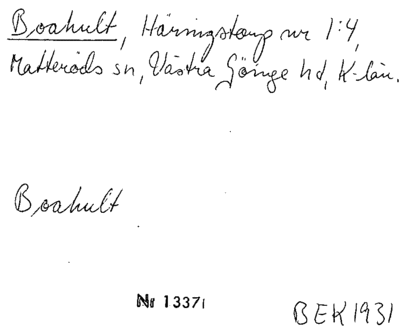 Boahult, Häringstorp nr 1:4,
Matteröds sn, Västra Göinge hd, K-län.
Boahult
Nr 1337i
BEK 1931